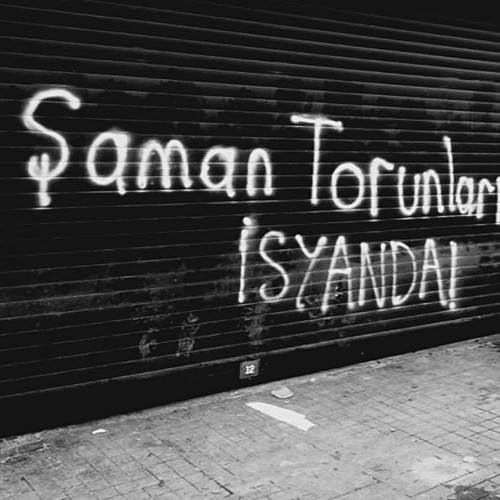 Şaman Torunları
İSYANDA!
12